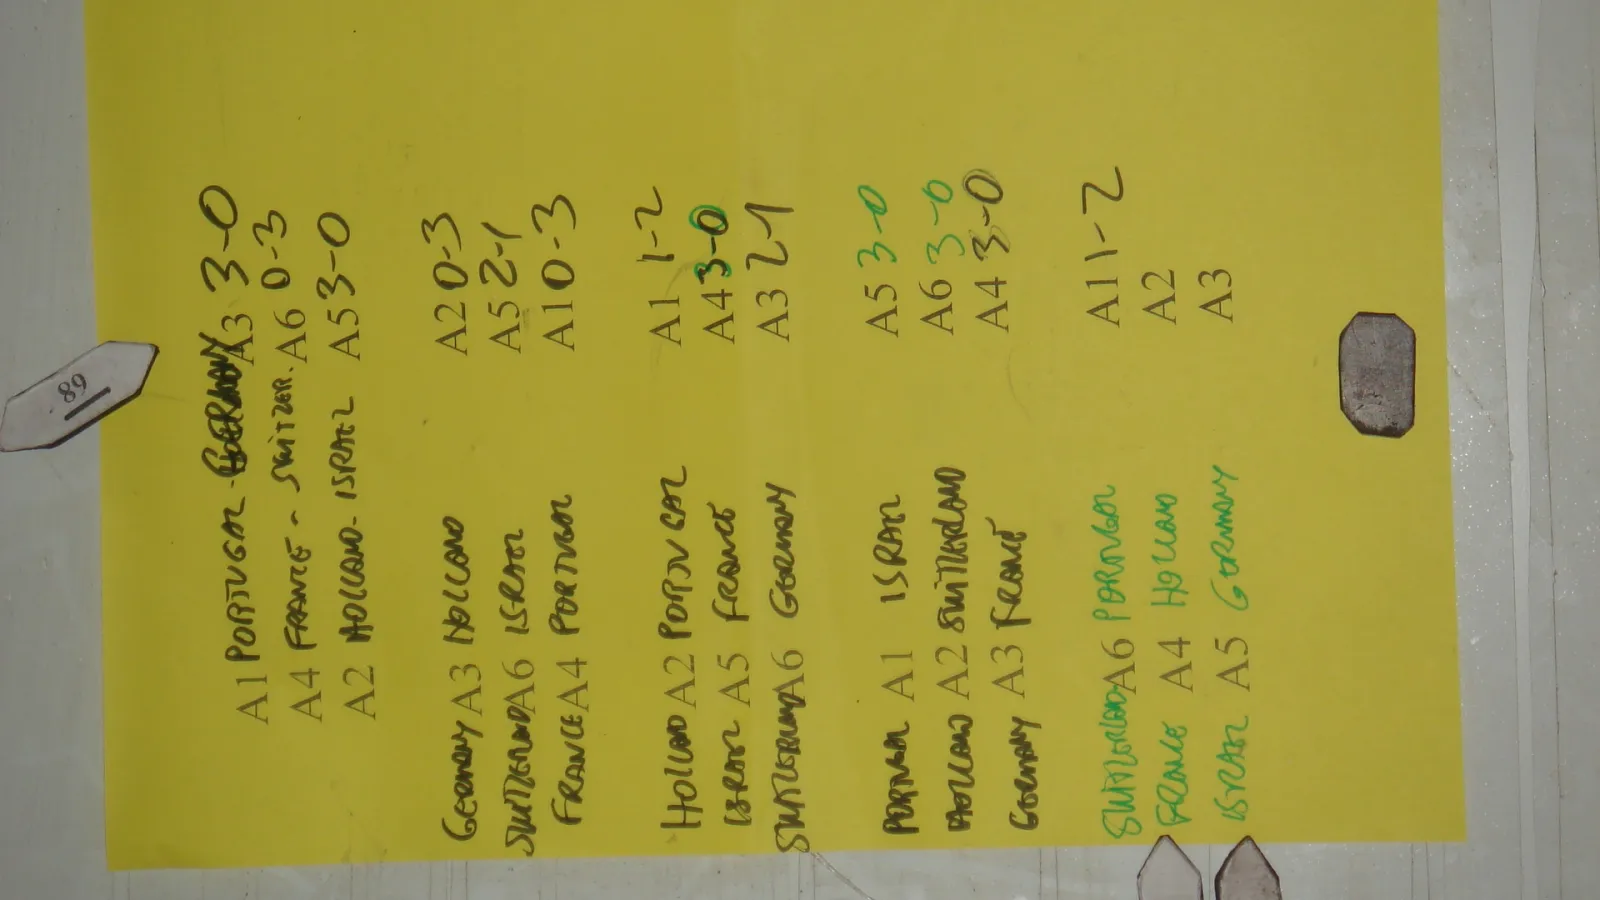 A1 PORTUGAL - GERMANY A3 3-0
A4 FRANCE - SWITZER. A6 0-3
A2 HOLLAND - ISRAEL A5 3-0
GERMANY A3 HOLLAND A2 0-3
SWITZERLAND A6 ISRAEL A5 2-1
FRANCE A4 PORTUGAL A1 0-3
HOLLAND A2 PORTUGAL A1 1-2
ISRAEL A5 FRANCE A4 3-0
SWITZERLAND A6 GERMANY A3 2-1
PORTUGAL A1 ISRAEL A5 3-0
HOLLAND A2 SWITZERLAND A6 3-0
GERMANY A3 FRANCE A4 3-0
SWITZERLAND A6 PORTUGAL A1 1-2
FRANCE A4 HOLLAND A2
ISRAEL A5 GERMANY A3
89